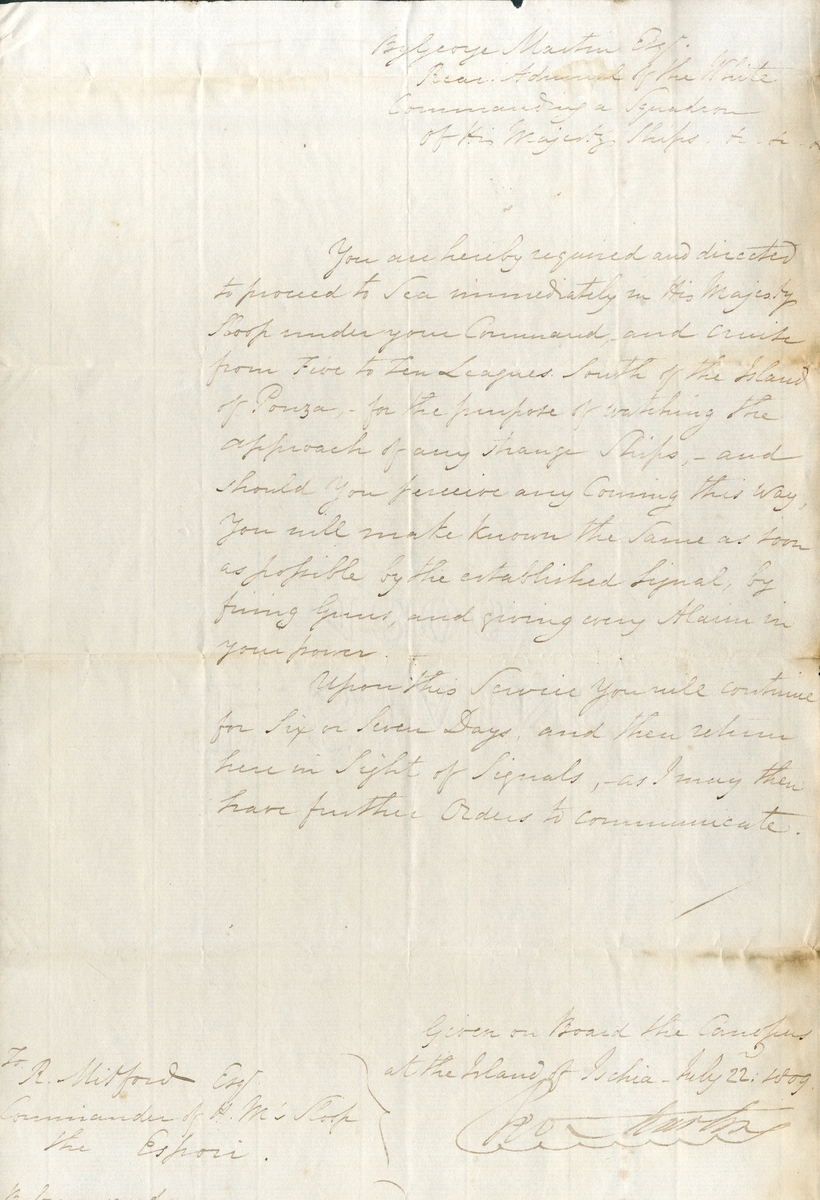 By George Martin Esqr.
Rear Admiral of the White
Commanding a Squadron
of His Majesty Ships &c &c &c
You are hereby required and directed
to proceed to Sea immediately in His Majesty
Sloop under your Command, and cruise
from Five to Ten Leagues South of the Island
of Ponza, - for the purpose of watching the
approach of any strange Ships, - and
should You perceive any Coming this way,
You will make known the Same as soon
as possible by the established Signal, by
firing Guns, and giving every Alarm in
your power.
Upon this Service You will continue
for Six or Seven Days, and then return
here in Sight of Signals, - as I may then
have further Orders to communicate.
Given on Board the Canopus
at the Island of Ischia - July 22d: 1809
Geo Martin
To
R. Mitford Esqr
Commander of H. M's Sloop
the Espoir.